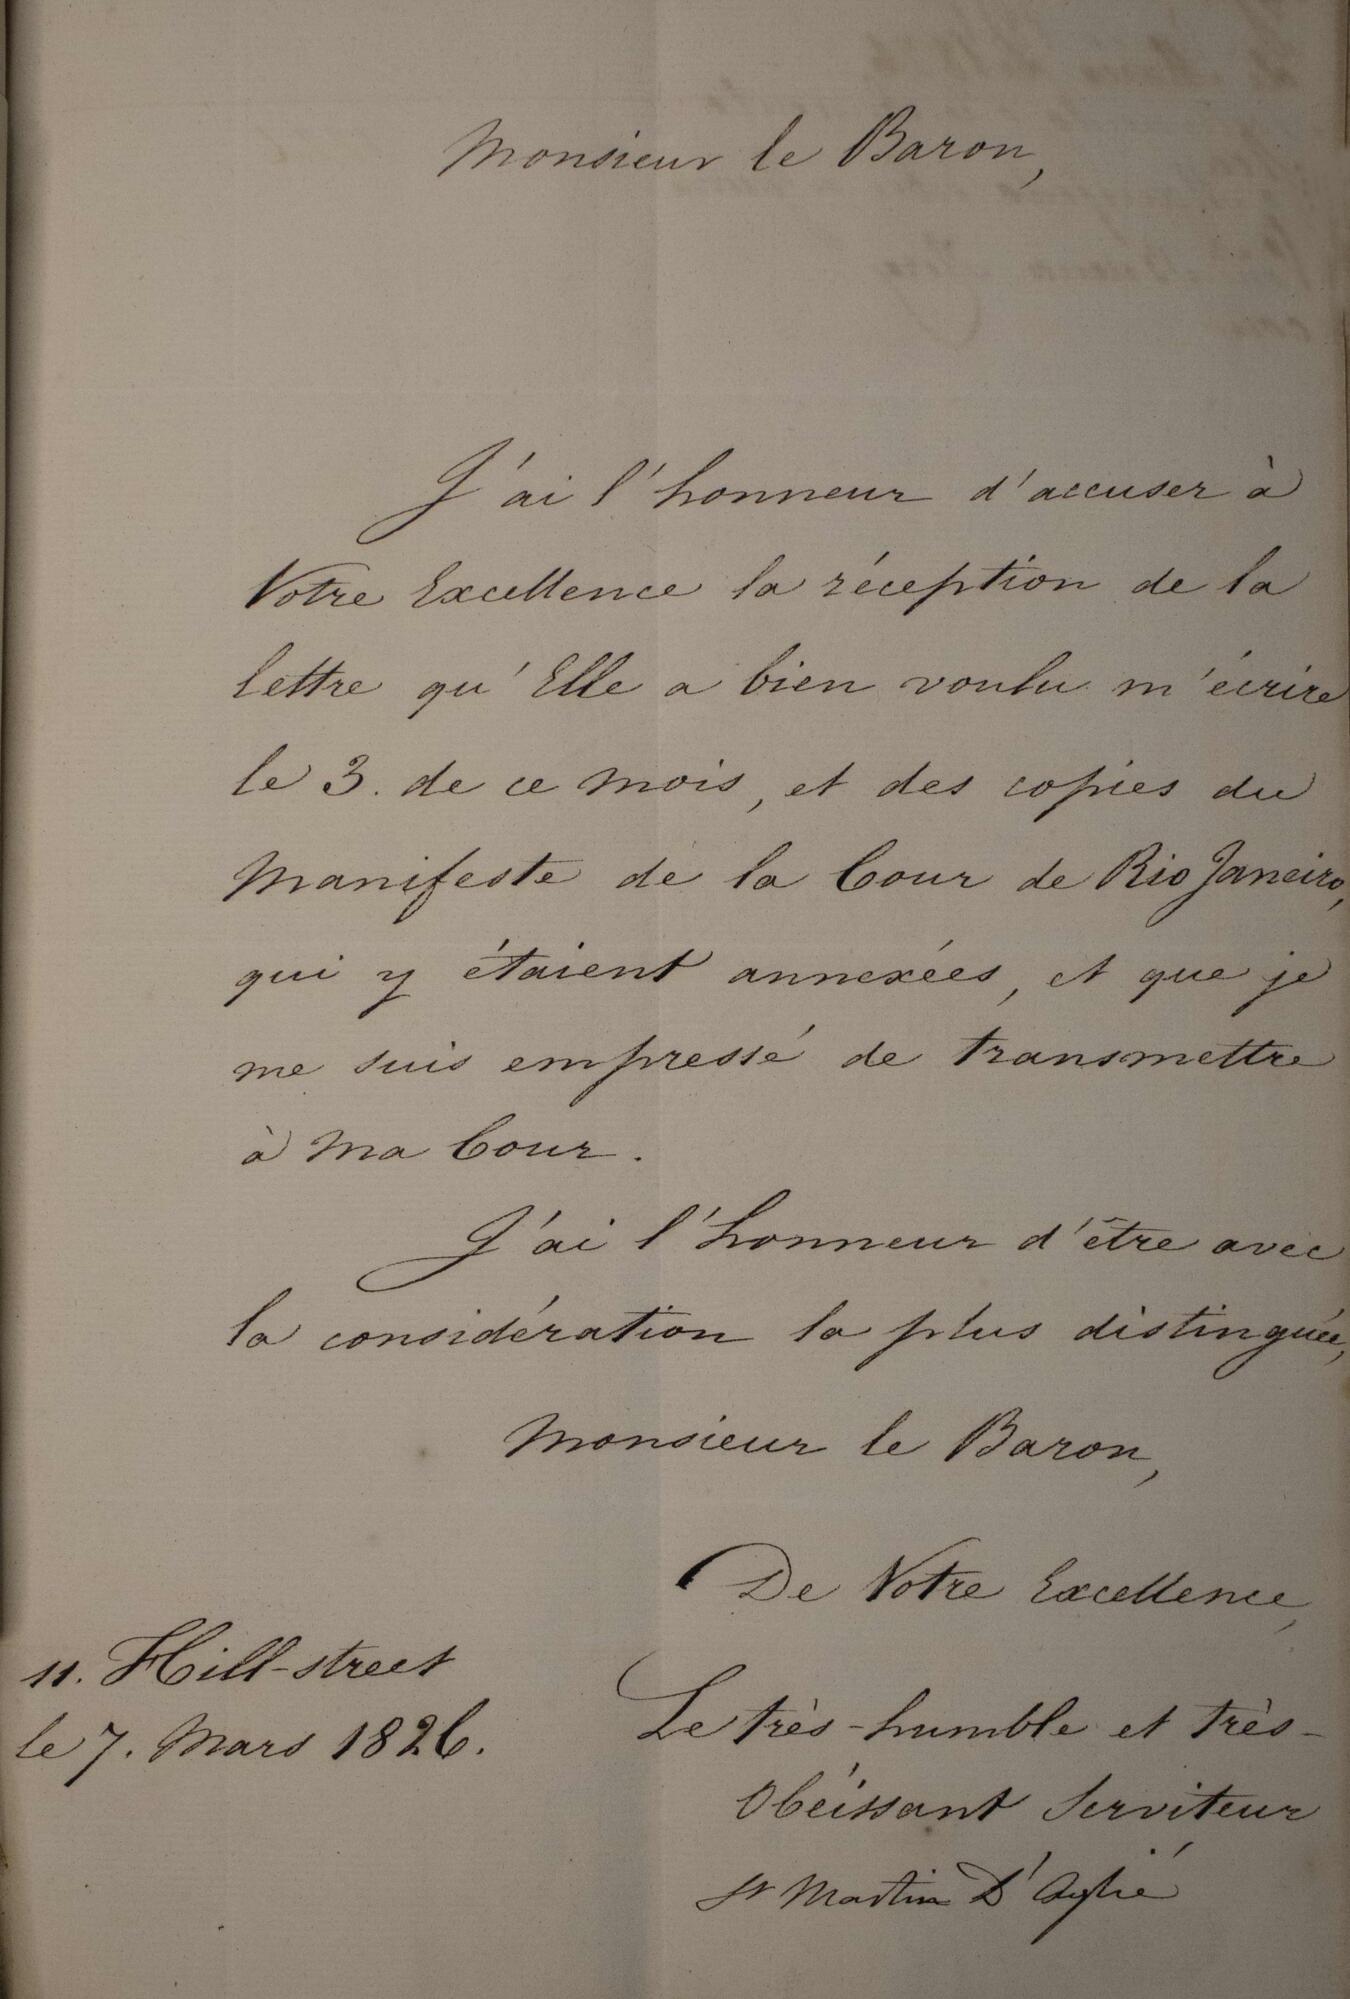 Monsieur le Baron,
J'ai l'honneur d'accuser à
Votre Excellence la réception de la
lettre qu'Elle a bien voulu m'écrire
le 3. de ce mois, et des copies du
Manifeste de la Cour de Rio Janeiro,
qui y étaient annexées, et que je
me suis empressé de transmettre
à ma Cour.
J'ai l'honneur d'être avec
la considération la plus distinguée,
Monsieur le Baron,
De Votre Excellence,
11. Hill-street
le 7. Mars 1826.
Le très-humble et très-
Obéissant Serviteur
St Martin D'Aglié